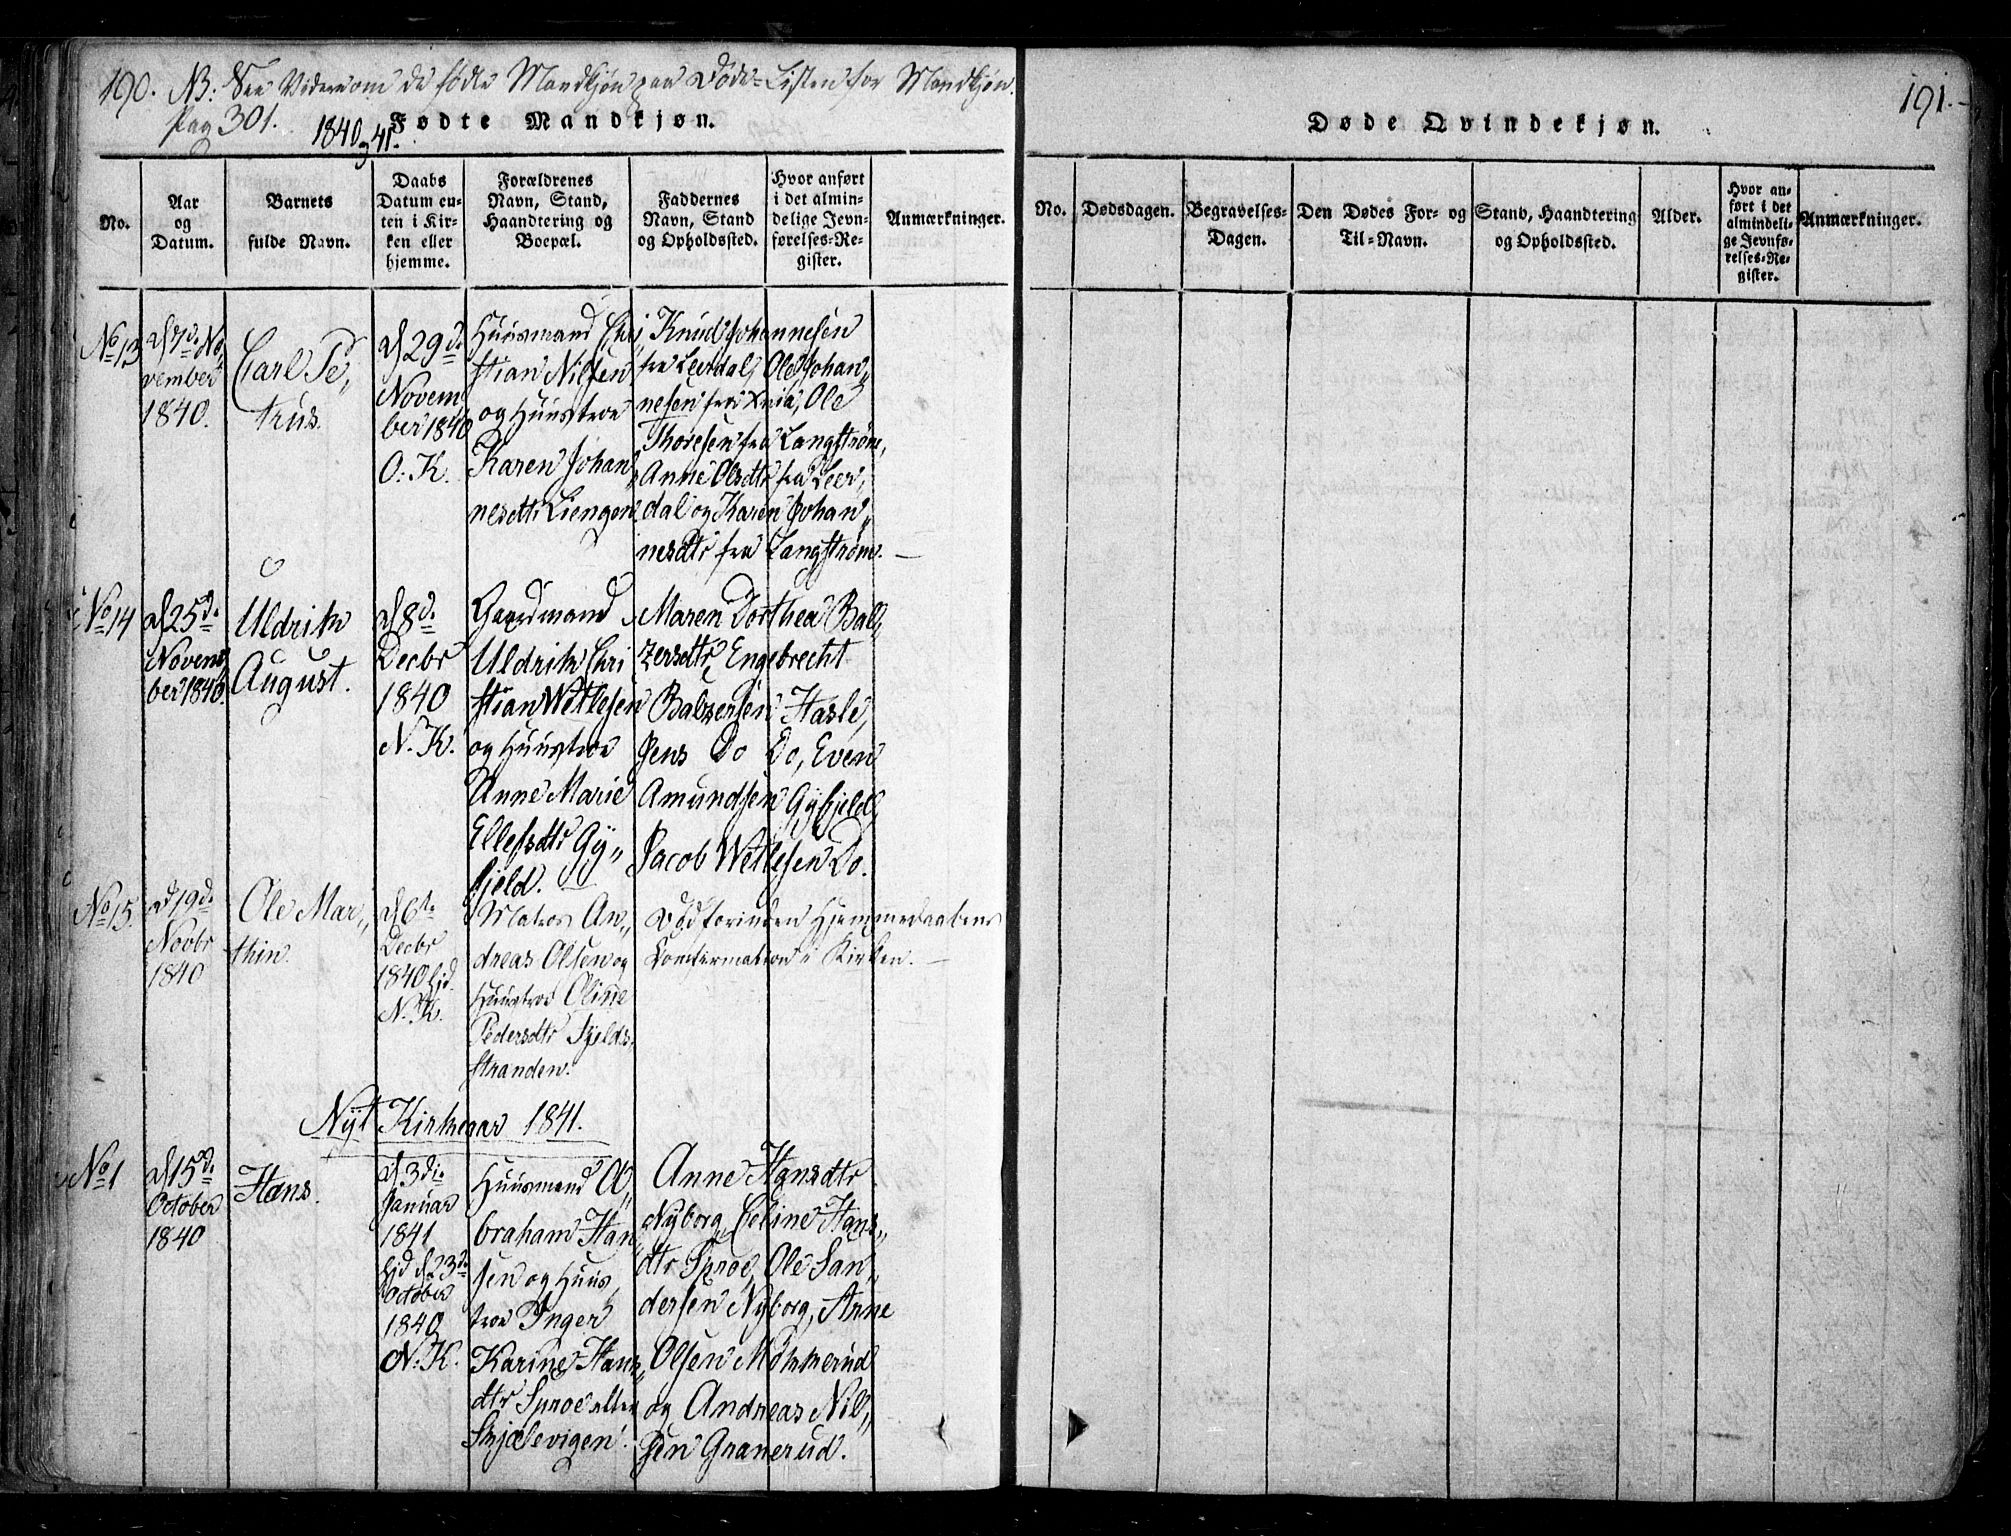 190. NB: See Videre om de fødte Mandkjøn paa Døde-Listen for Mandkjøn.
Pag 301.
1840 og 41.
Fødte Mandkjøn.
No.
Aar
og
Datum.
Barnets
fulde Navn.
Daabs
Datum en-
ten i Kir-
ken eller
hjemme.
Forældrenes
Navn, Stand,
Haandtering og
Boepæl.
Faddernes
Navn, Stand
og Opholdssted.
Hvor anført
i det almin-
delige Jevn-
førelses-Re-
gister.
Anmærkninger.
No 13
d. 7d. No„
vember
1840.
Carl Pe„
trus.
d. 29d.
Novem
ber 1840
O: K.
Huusmand Chri
stian Nilsen
og Huustroe
Karen Johan„
nesdtr Liengen
Knud Johannesen
fra Leerdal, Ole Johan„
nesen fra Knia, Ole
Thoresen fra Langstrøm,
Anne Olsdtr fra Leer„
dal og Karen Johan„
nesdtr fra Langstrøm. —
No 14
d. 25d.
Novem
ber 1840.
Uldrik
August.
d. 8d.
Decbr
1840
N. K.
Gaardmand
Uldrik Chri
stian Wetlesen
og Huustroe
Anne Marie
Ellefsdtr Gy„
fjeld. —
Maren Dorthea Bal„
zersdtr, Engebrecht
Balzersen Hasle,
Jens Do Do, Even
Amundsen Gyfjeld,
Jacob Wetlesen Do.
No 15.
d. 19d.
Novbr
1840
Ole Mar„
thin.
d. 6te
Decbr
1840 hjd.
N. K.
Matros An„
dreas Olsen og
Huustroe Oline
Pedersdtr Fjelds„
stranden.
Død forinden Hjemmedaabens
Confirmation i Kirken. —
Nyt Kirkeaar 1841.
No 1
d. 15d.
October
1840
Hans.
d. 3di.
Januar
1841
hjd d. 23d.
October
1840
N. K.
Huusmand A„
braham Han„
sen og Huus„
troe Inger
Karine Hans„
dtr Sproe eller
Skjælevigen.
Anne Hansdtr
Nyborg, Celine Hans„
dtr Sproe, Ole San„
dersen Nyborg, Arne
Olsen Mokkerud
og Andreas Nil„
sen Granerud.
191.
Døde Qvindekjøn.
No.
Dødsdagen.
Begravelses-
Dagen.
Den Dødes For- og
Til-Navn.
Stand, Haandtering
og Opholdssted.
Alder.
Hvor an-
ført i det
almindeli-
ge Jevnfø-
relses-Re-
gister.
Anmærkninger.